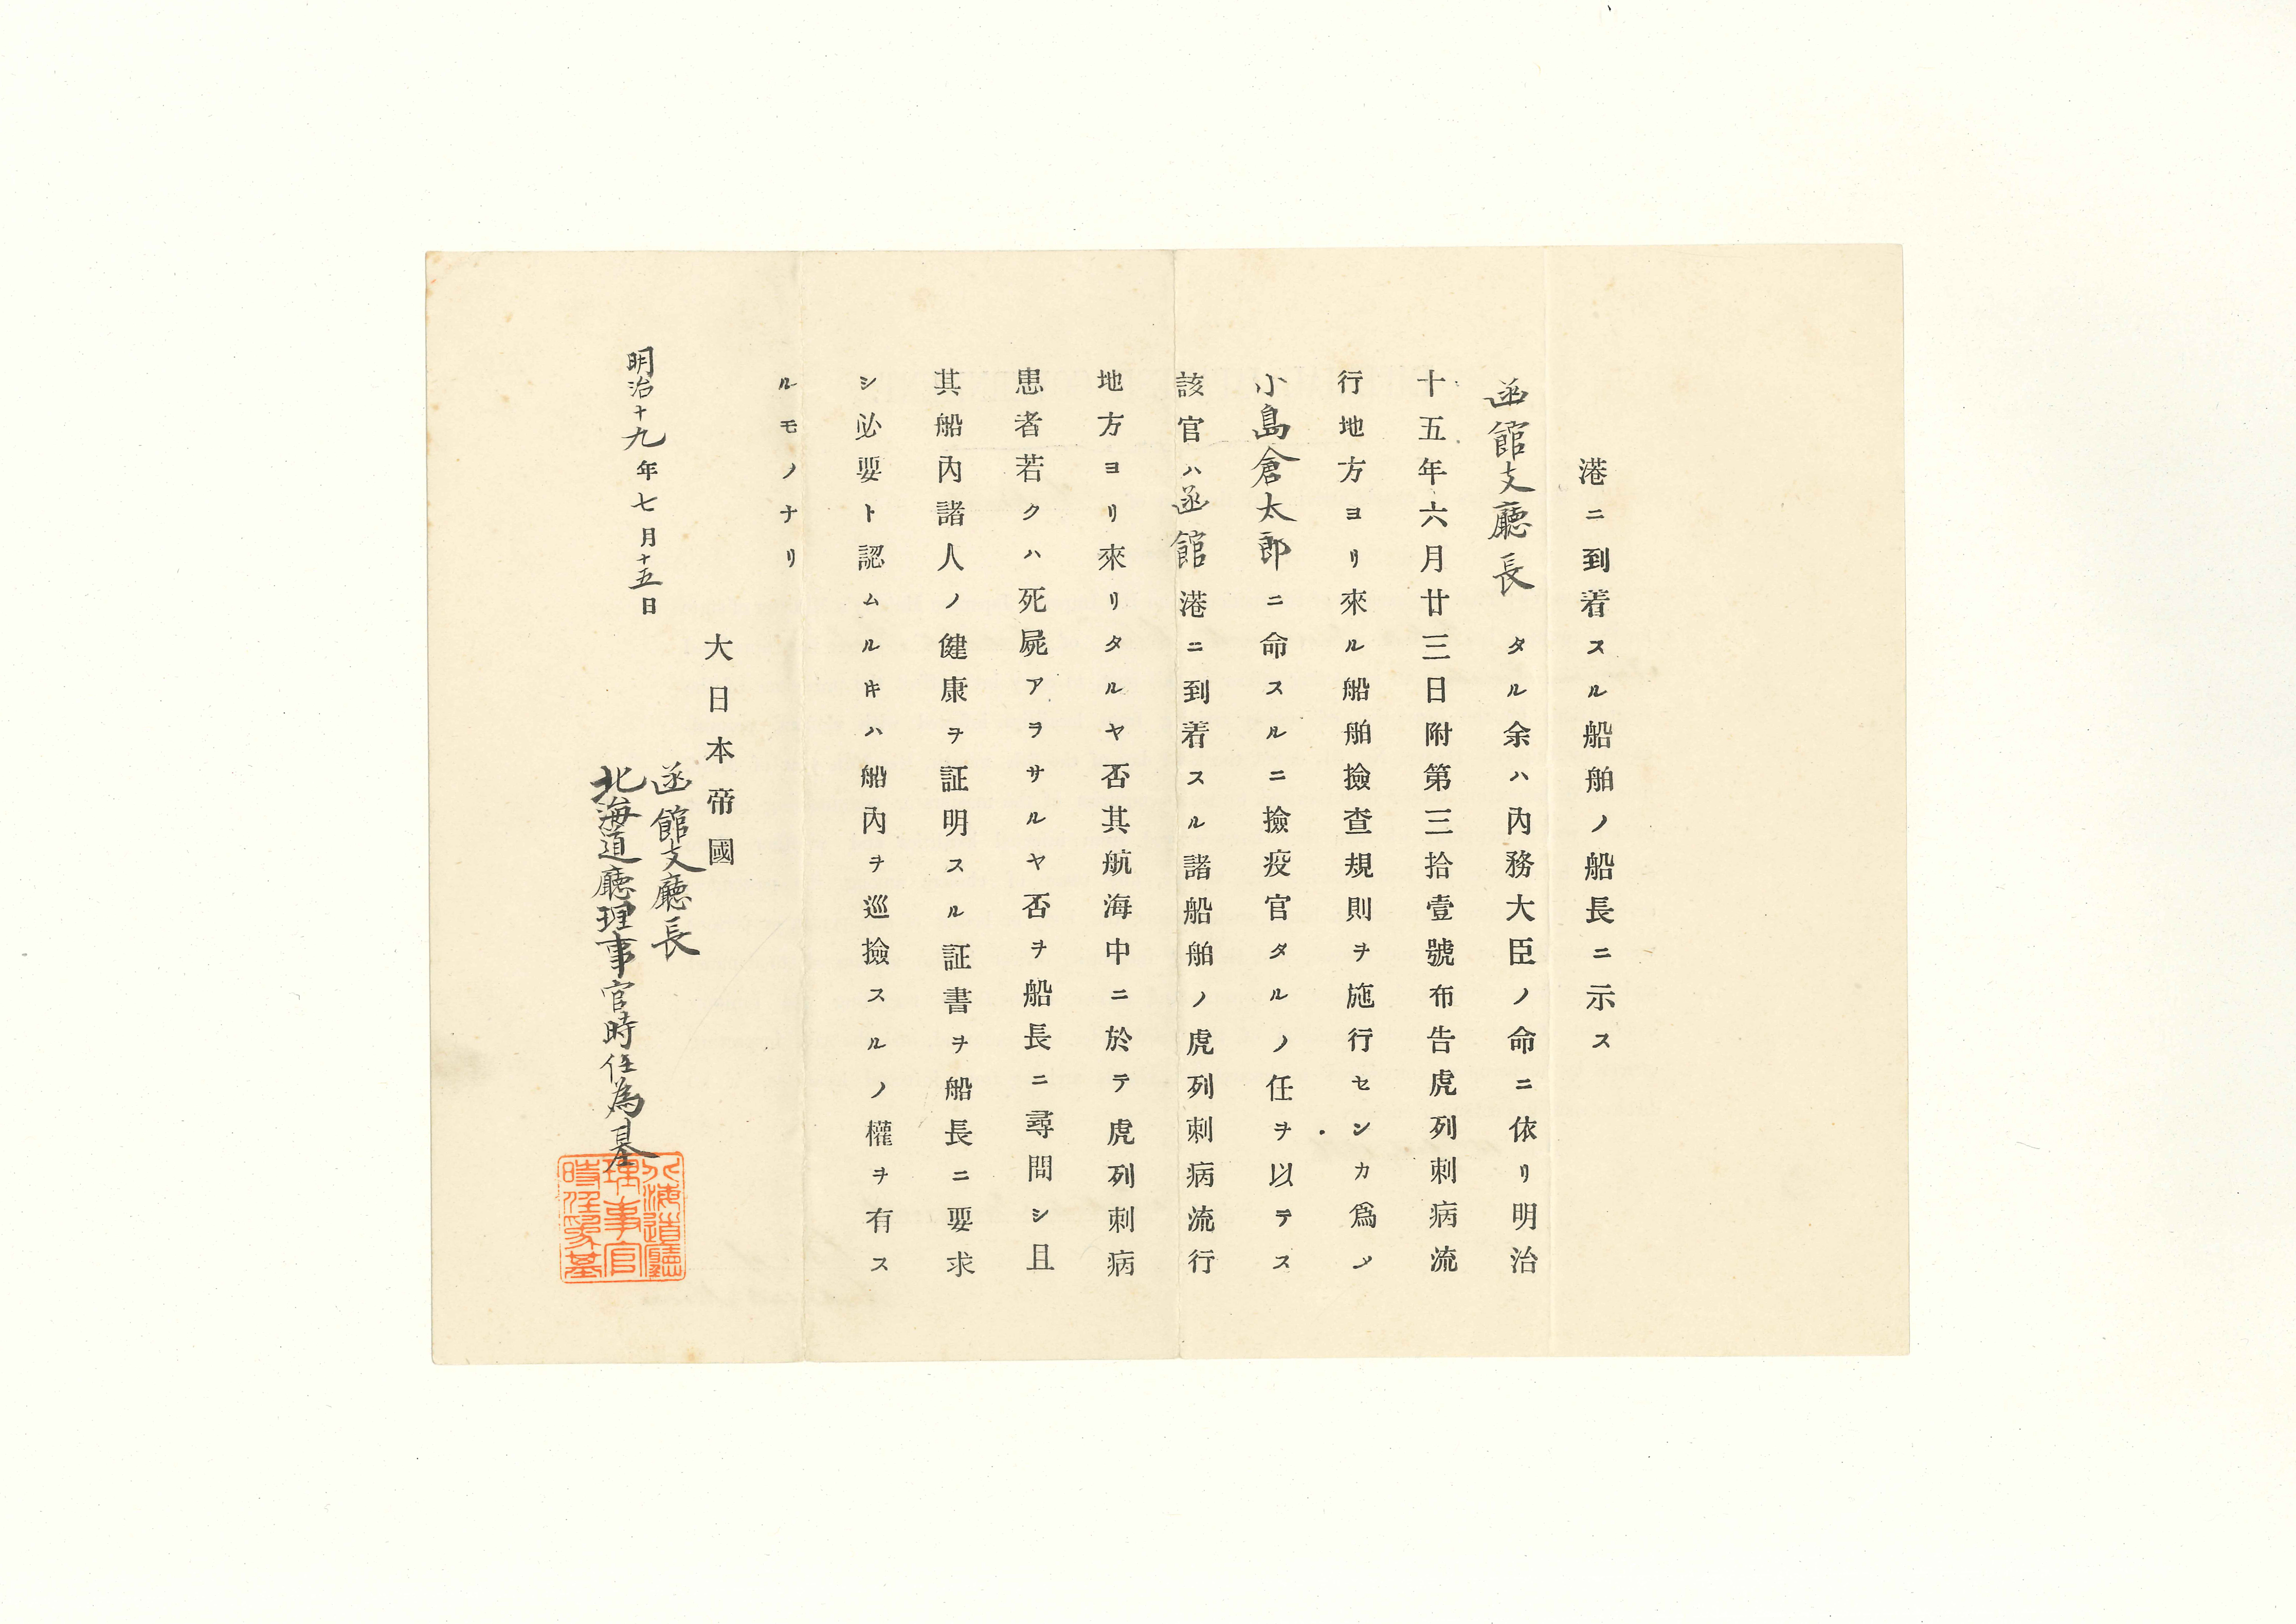 港ニ到着スル船舶ノ船長ニ示ス
函館支廳長 タル余ハ內務大臣ノ命ニ依リ明治
十五年六月廿三日附第三拾壹號布告虎列刺病流
行地方ヨリ來ル船舶撿查規則ヲ施行センカ爲メ
小島倉太郎ニ命スルニ撿疫官タルノ任ヲ以テス
該官ハ函館港ニ到着スル諸船舶ノ虎列刺病流行
地方ヨリ來リタルヤ否其航海中ニ於テ虎列刺病
患者若クハ死屍アラサルヤ否ヲ船長ニ尋問シ且
其船內諸人ノ健康ヲ証明スル証書ヲ船長ニ要求
シ必要ト認ムルキハ船內ヲ巡撿スルノ權ヲ有ス
ルモノナリ
大日本帝國
函館支廳長
北海道廳理事官時任為基
明治十九年七月十五日
北海道廳
理事官
時任為基